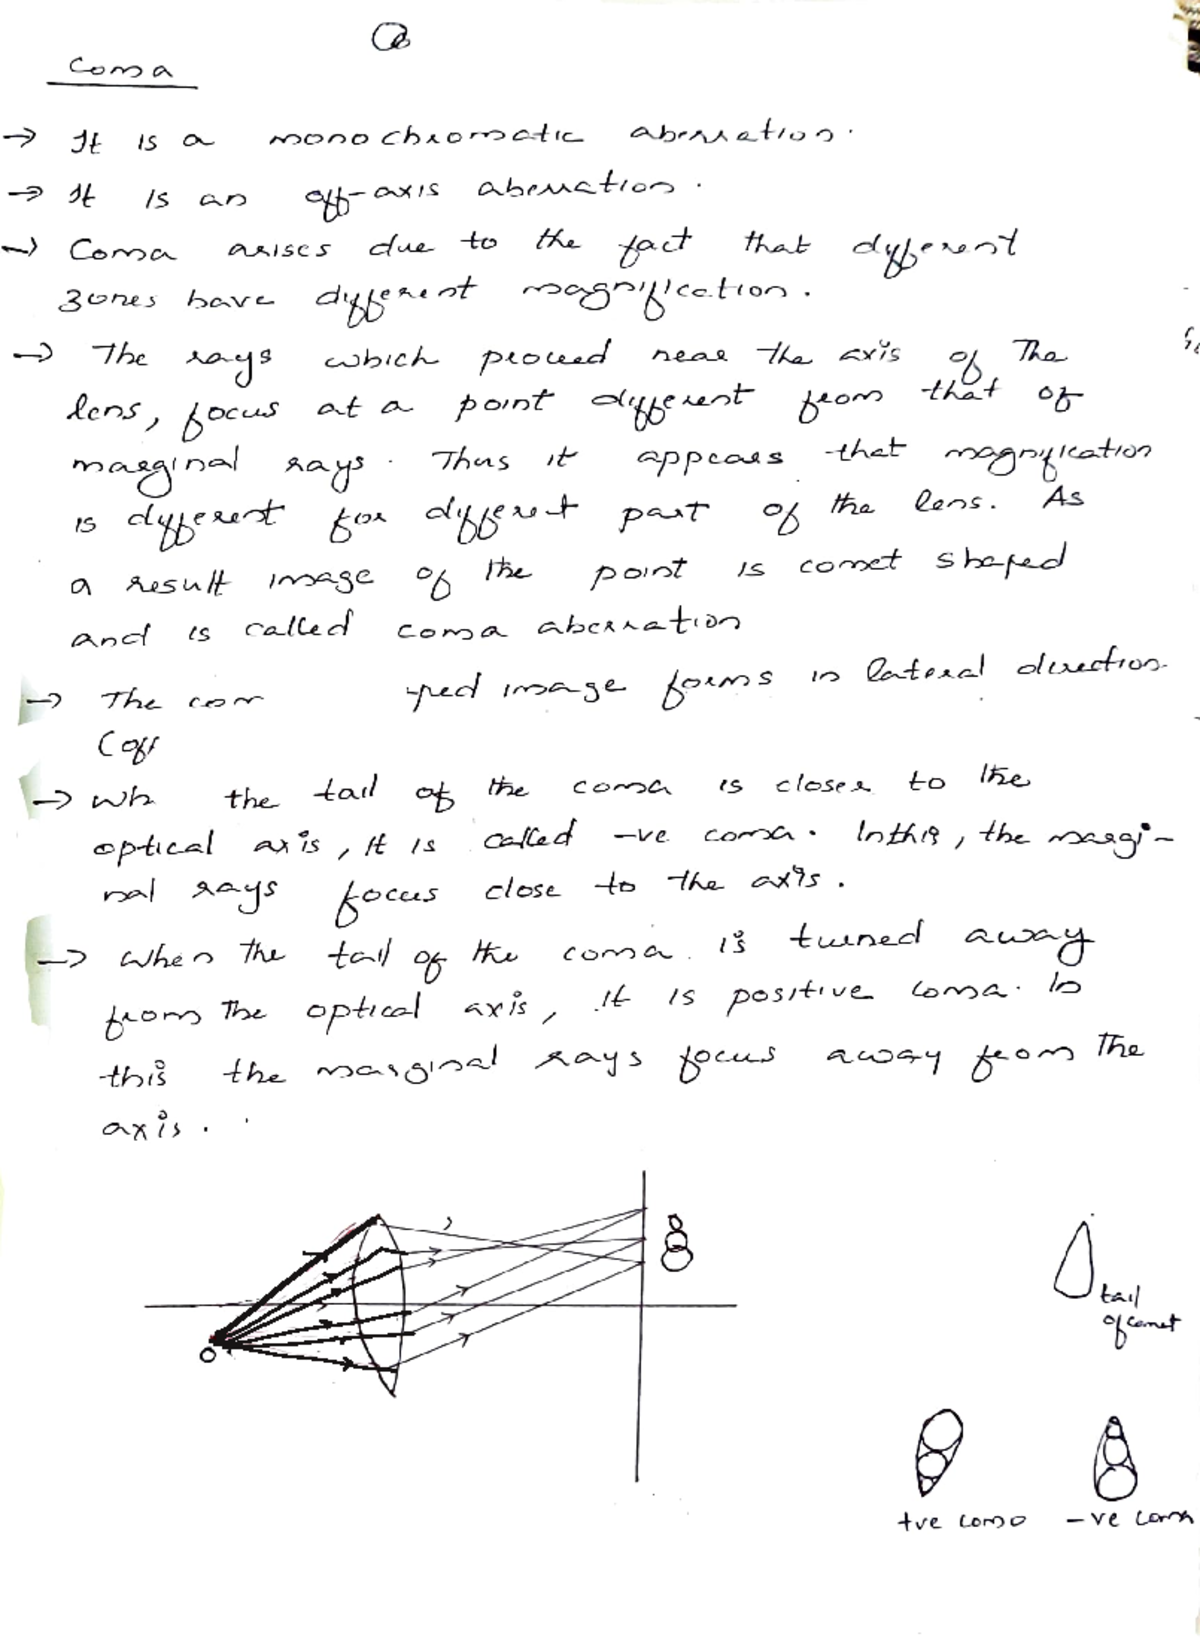 Coma
→ It is a monochromatic aberration.
→ It is an off-axis aberration.
→ Coma arises due to the fact that different
zones have different magnification.
→ The rays which proceed near the axis of The
lens, focus at a point different from that of
marginal rays. Thus it appears that magnification
is different for different part of the lens. As
a result image of the point is comet shaped
and is called coma aberration
→ The com -ped image forms in lateral direction.
(off
→ Wh the tail of the coma is closer to the
optical axis, it is called -ve coma. In this, the margi-
nal rays focus close to the axis.
→ When the tail of the coma is turned away
from The optical axis, it is positive coma. In
this the marginal rays focus away from The
axis.
O
tail
of comet
+ve coma -ve coma